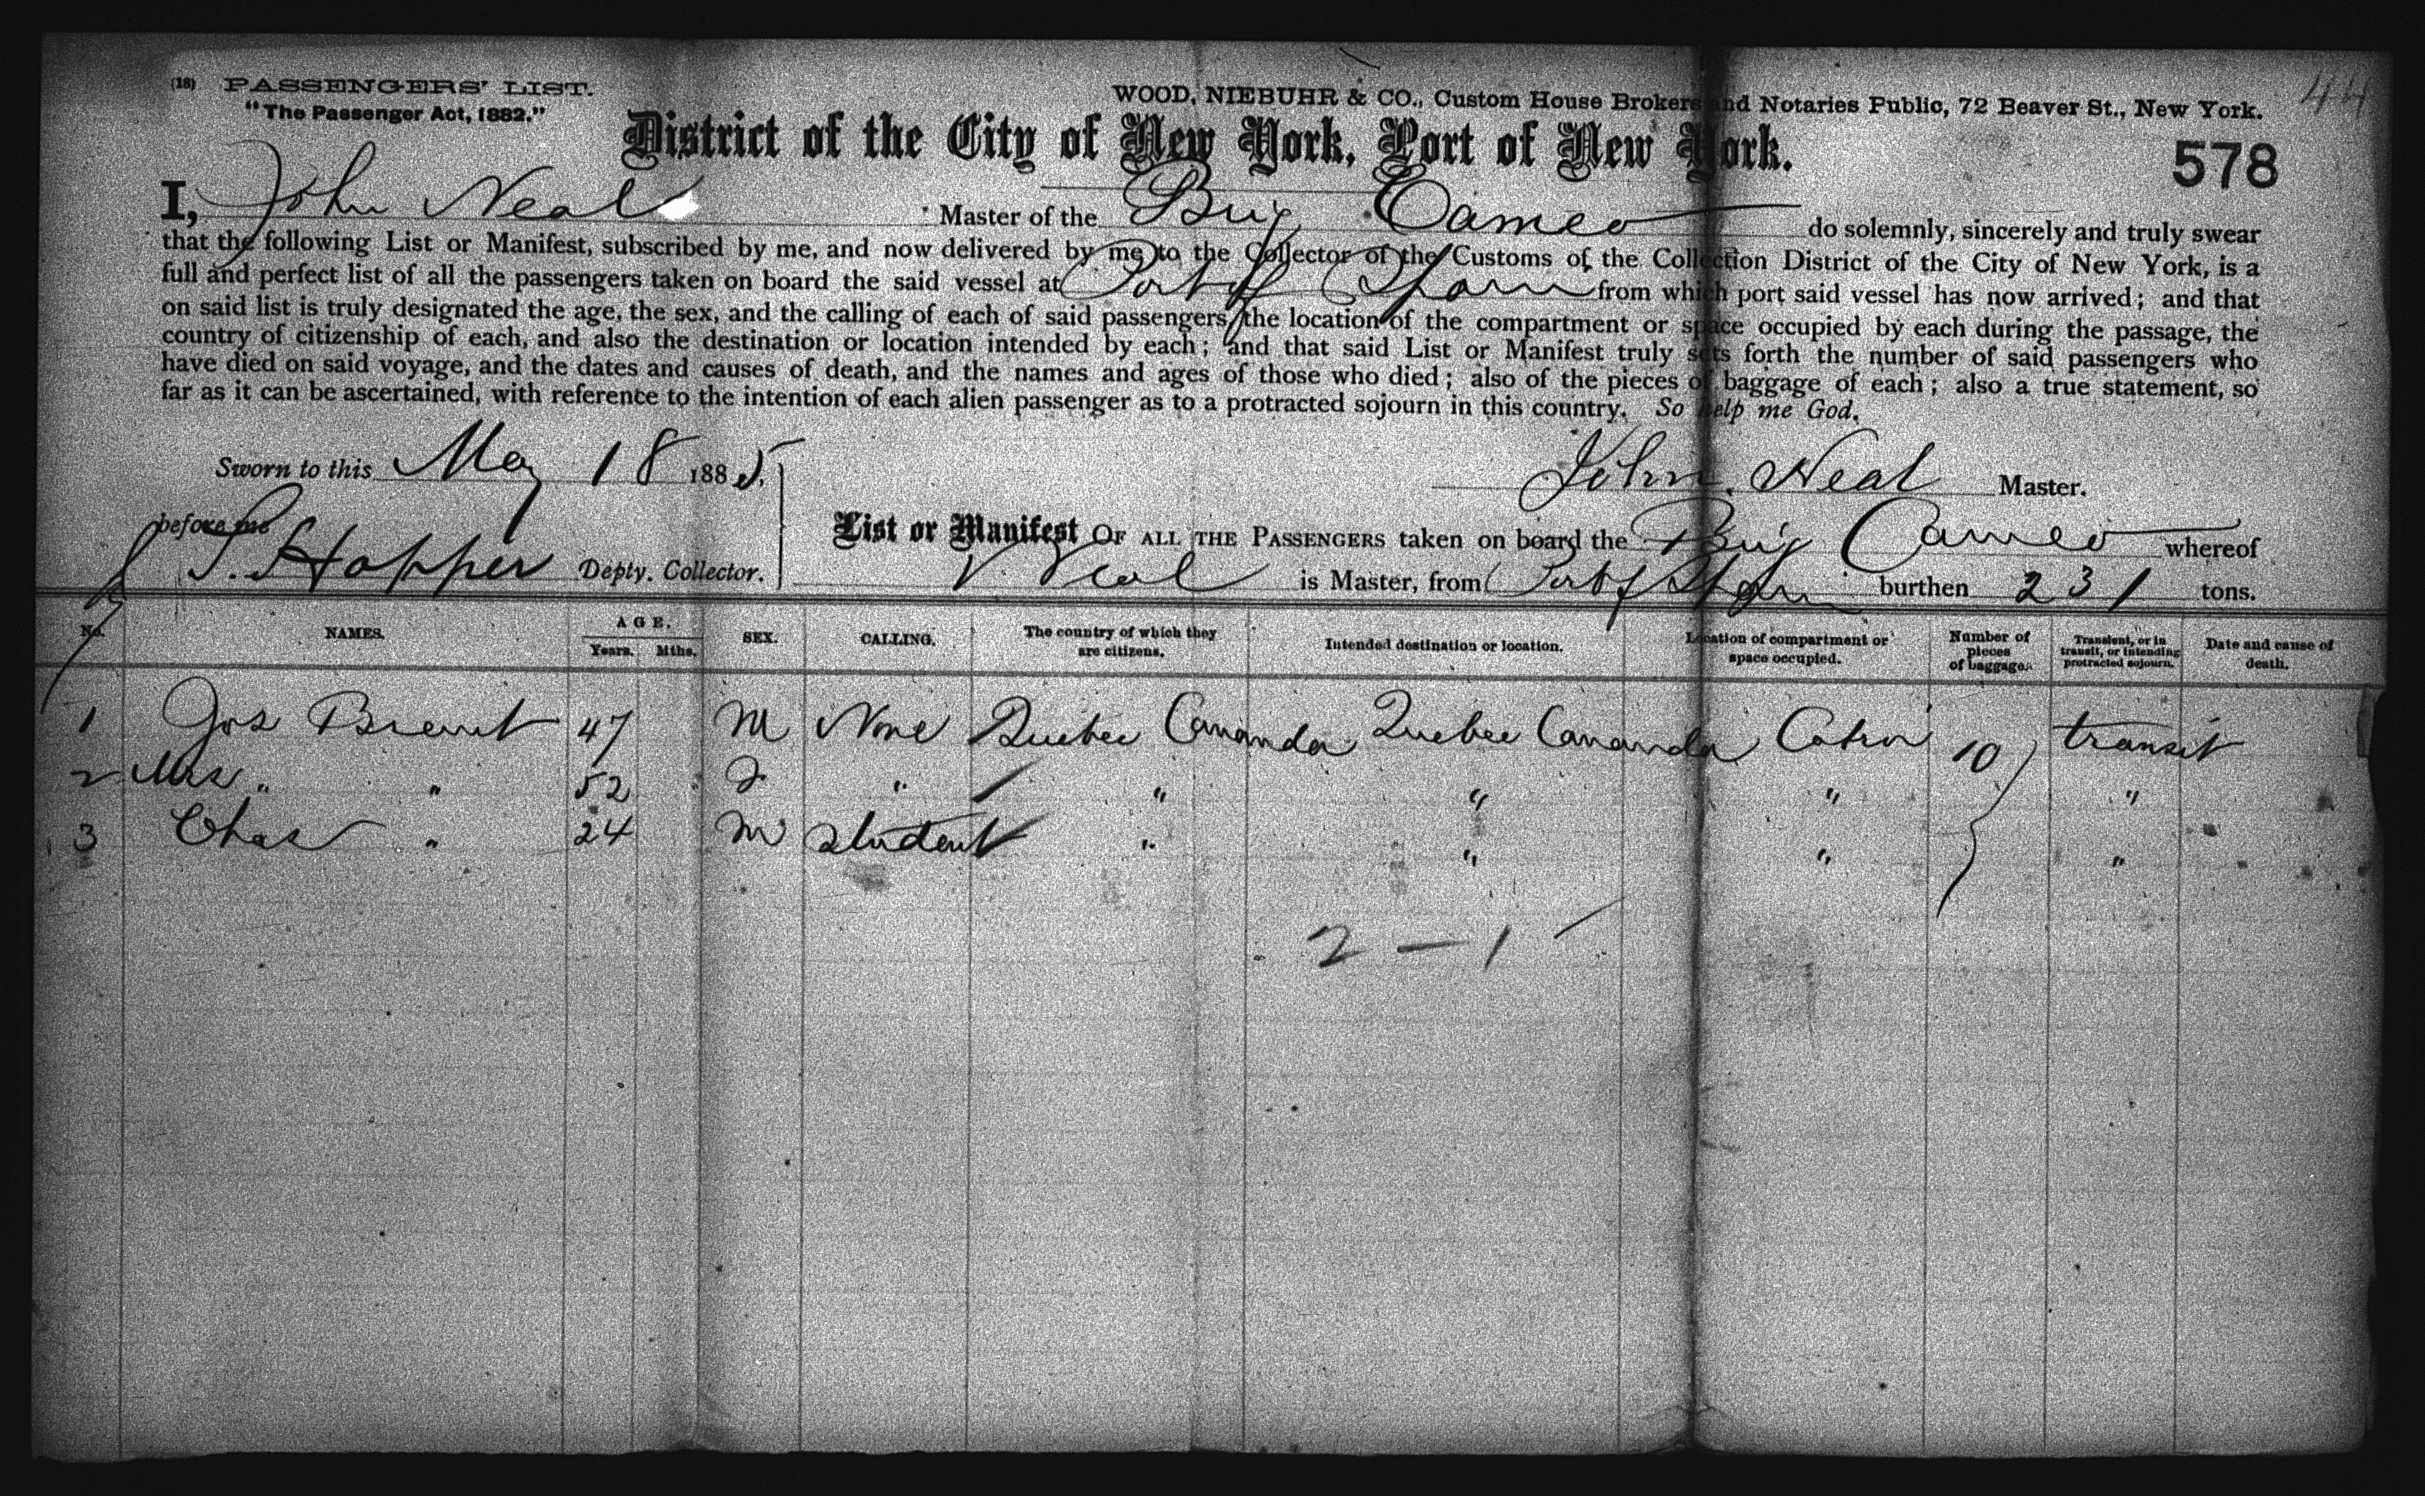 (18) PASSENGERS' LIST.
"The Passenger Act, 1882."
WOOD, NIEBUHR & CO., Custom House Brokers and Notaries Public, 72 Beaver St., New York.
44
District of the City of New York, Port of New York.
578
I, John Neal Master of the Brig Cameo do solemnly, sincerely and truly swear
that the following List or Manifest, subscribed by me, and now delivered by me to the Collector of the Customs of the Collection District of the City of New York, is a
full and perfect list of all the passengers taken on board the said vessel at Port of Spain from which port said vessel has now arrived; and that
on said list is truly designated the age, the sex, and the calling of each of said passengers, the location of the compartment or space occupied by each during the passage, the
country of citizenship of each, and also the destination or location intended by each; and that said List or Manifest truly sets forth the number of said passengers who
have died on said voyage, and the dates and causes of death, and the names and ages of those who died; also of the pieces of baggage of each; also a true statement, so
far as it can be ascertained, with reference to the intention of each alien passenger as to a protracted sojourn in this country. So help me God.
Sworn to this May 18 1885.
John Neal Master.
before me
S. Hopper Depty. Collector.
List or Manifest OF ALL THE PASSENGERS taken on board the Brig Cameo whereof
Neal is Master, from Port of Spain burthen 231 tons.
No. NAMES. AGE. Years. Mths. SEX. CALLING. The country of which they are citizens. Intended destination or location. Location of compartment or space occupied. Number of pieces of baggage. Transient, or in transit, or intending protracted sojourn. Date and cause of death.
1 Jos 47 M None Quebec Cananda Quebec Cananda Cabin 10 transit
2 Mrs " " 52 F " " " " "
3 Chas " 24 M Student " " " "
2 — 1